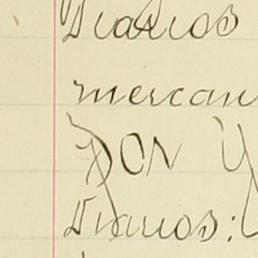 Diarios
mercan
por y
Diarios: